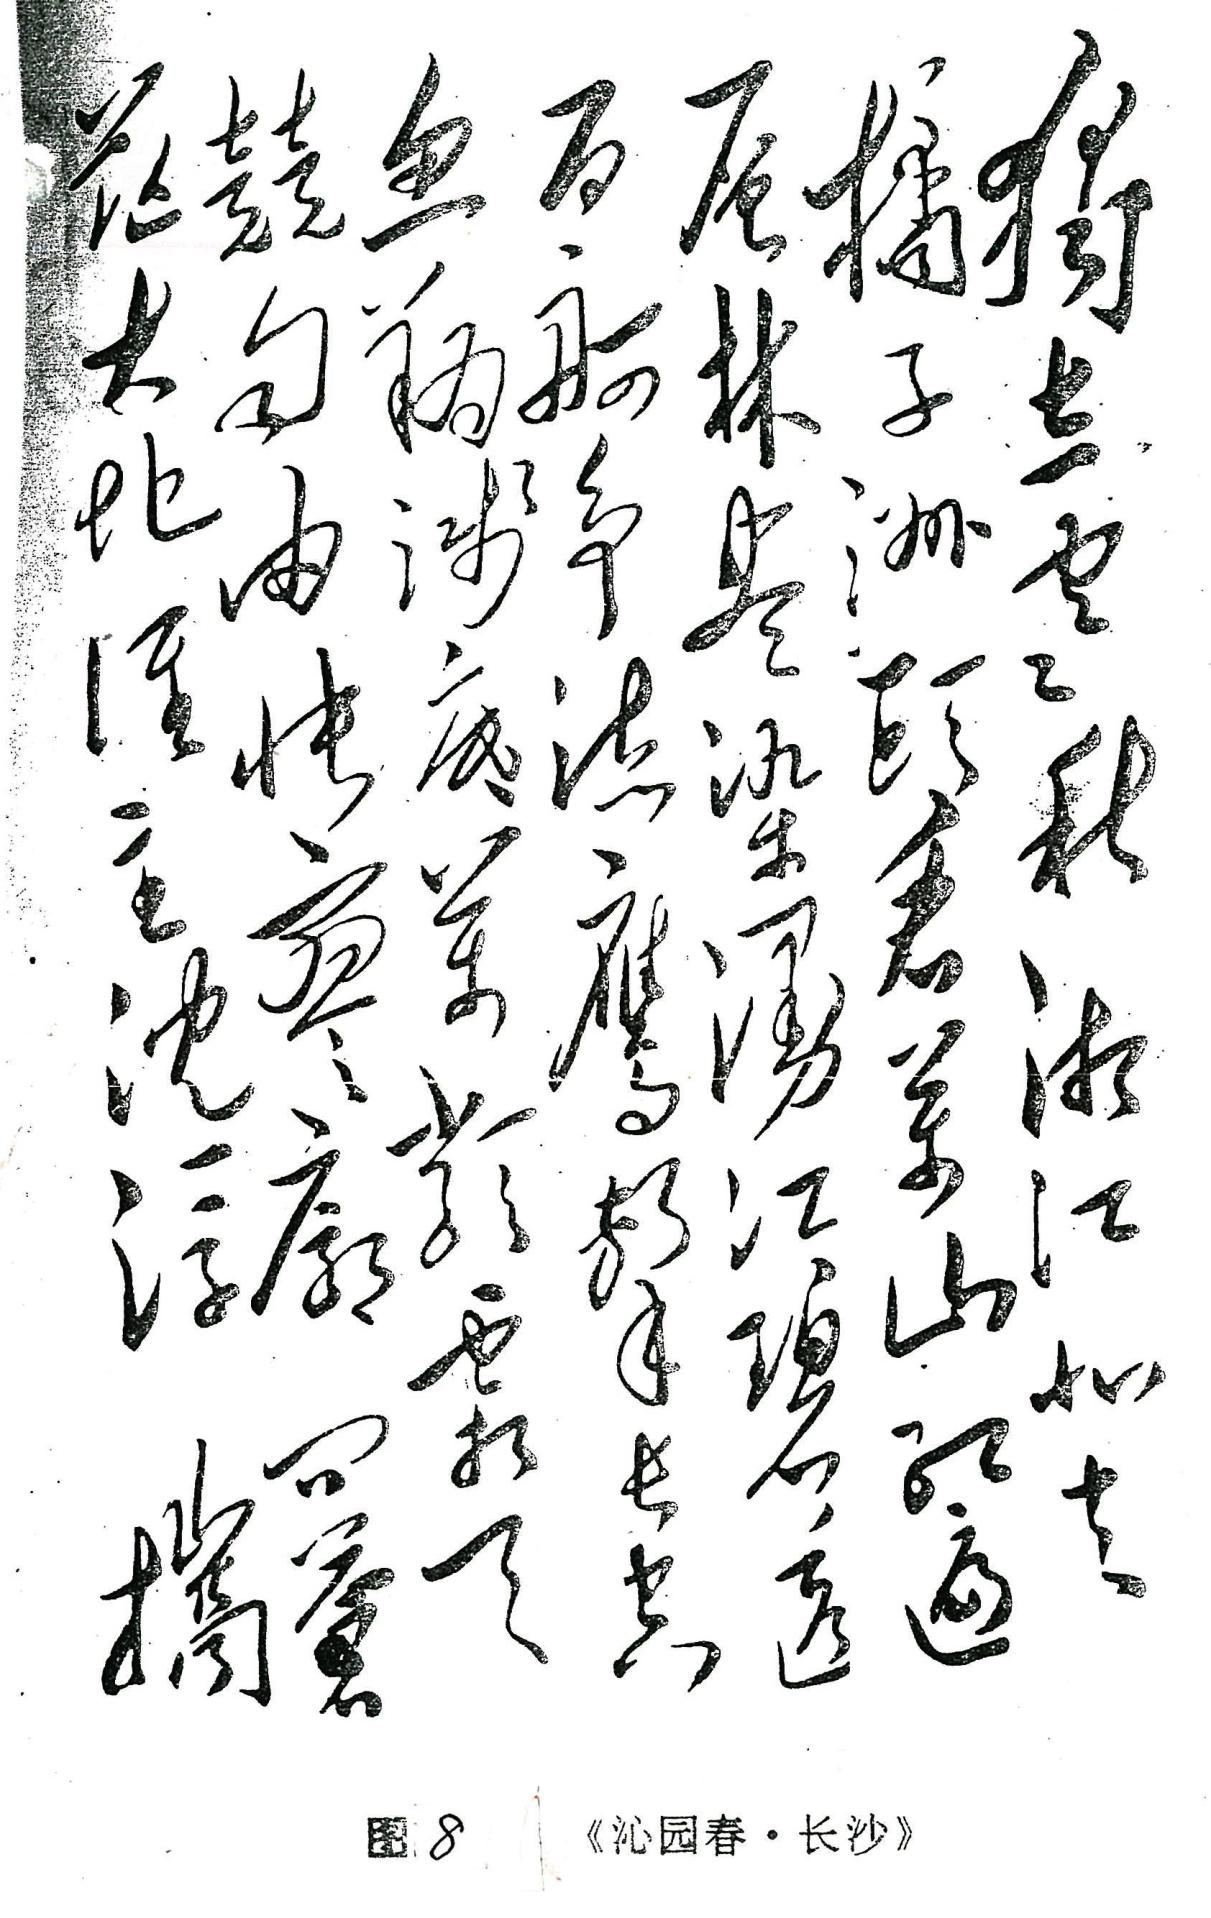 獨立寒秋湘江北去
橘子洲頭看萬山红遍
层林尽染漫江碧透
百舸争流鷹擊長空
魚翔浅底萬類霜天
競自由怅寥廓问蒼
茫大地谁主沉浮 携
图8 《沁园春·长沙》